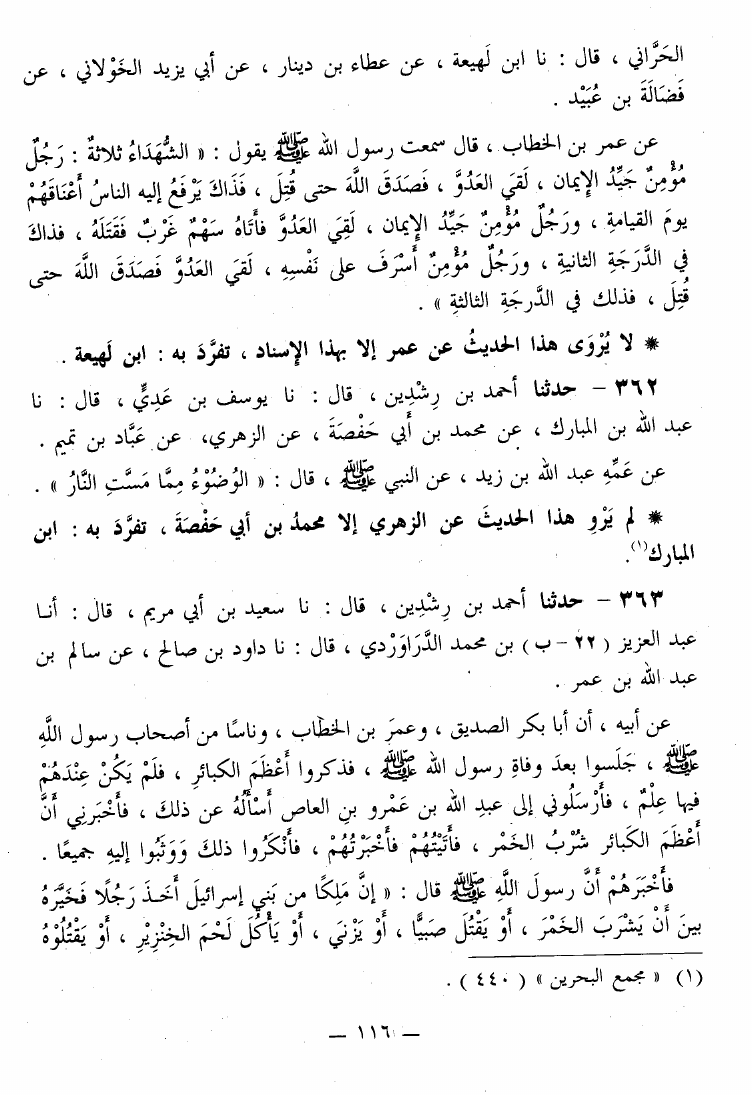 الحَرَّاني ، قال : نا ابن لَهيعة ، عن عطاء بن دينار ، عن أبي يزيد الخَوْلاني ، عن
فَضَالَةَ بن عُبَيْد .
عن عمر بن الخطاب ، قال سمعت رسول الله ﷺ يقول : « الشُّهَدَاءُ ثلاثةٌ : رَجُلٌ
مُؤْمِنٌ جَيِّدُ الإِيمان ، لَقيَ العَدُوَّ ، فَصَدَقَ اللَّهَ حتى قُتِلَ ، فَذَاكَ يَرْفَعُ إليه الناسُ أَعْنَاقَهُمْ
يومَ القيامةِ ، ورَجُلٌ مُؤْمِنٌ جَيِّدُ الإِيمان ، لَقِيَ العَدُوَّ فأتَاهُ سَهْمٌ غَرْبٌ فَقَتَلَهُ ، فذاكَ
في الدَّرَجَةِ الثانيةِ ، ورَجُلٌ مُؤْمِنٌ أَسْرَفَ على نَفْسِهِ ، لَقيَ العَدُوَّ فَصَدَقَ اللَّهَ حتى
قُتِلَ ، فذلكَ في الدَّرجةِ الثالثةِ » .
* لا يُرْوَى هذا الحديثُ عن عمر إلا بهذا الإِسناد ، تفرَّدَ به : ابن لَهيعة .
٣٦٢ – حدثنا أحمد بن رِشْدِين ، قال : نا يوسف بن عَدِيٍّ ، قال : نا
عبد الله بن المبارك ، عن محمد بن أبي حَفْصَةَ ، عن الزهري، عن عَبَّاد بن تميم .
عن عَمِّهِ عبد الله بن زيد ، عن النبي ﷺ ، قال : « الوُضُوْءُ مِمَّا مَسَّتِ النَّارُ » .
* لم يَرْوِ هذا الحديثَ عن الزهري إلا محمدُ بن أبي حَفْصَةَ ، تفرَّدَ به : ابن
المبارك(١).
٣٦٣ – حدثنا أحمد بن رِشْدِين ، قال : نا سعيد بن أبي مريم ، قال : أنا
عبد العزيز ( ٢٢ – ب ) بن محمد الدَّرَاوَرْدي ، قال : نا داود بن صالح ، عن سالم بن
عبد الله بن عمر .
عن أبيه ، أن أبا بكر الصديق ، وعمرَ بن الخطاب ، وناسًا من أصحاب رسول اللَّهِ
ﷺ ، جَلَسوا بعدَ وفاةِ رسول الله ﷺ ، فذكروا أَعْظَمَ الكبائرِ ، فلَمْ يَكُنْ عِنْدَهُمْ
فيها عِلْمٌ ، فأَرْسَلُوني إلى عبدِ الله بن عَمْرو بنِ العاص أَسْأَلُهُ عن ذلكَ ، فأَخْبَرنِي أَنَّ
أَعْظَمَ الكَبائر شُرْبُ الخَمْر ، فأَتَيْتُهُمْ فأخْبَرْتُهُمْ ، فأَنْكَرُوا ذلكَ وَوَثَبُوا إليهِ جميعًا .
فأَخْبَرَهُمْ أنَّ رسولَ اللَّهِ ﷺ قال : « إنَّ مَلِكًا من بَنِي إسرائيلَ أَخَذَ رَجُلًا فَخَيَّرَهُ
بينَ أَنْ يَشْرَبَ الخَمْرَ ، أَوْ يَقْتُلَ صَبيًّا ، أَوْ يَزْنيَ ، أَوْ يَأْكُلَ لَحْمَ الخِنْزِيْرِ ، أَوْ يَقْتُلُوْهُ
(١) « مجمع البحرين » ( ٤٤٠ ) .
– ١١٦ –